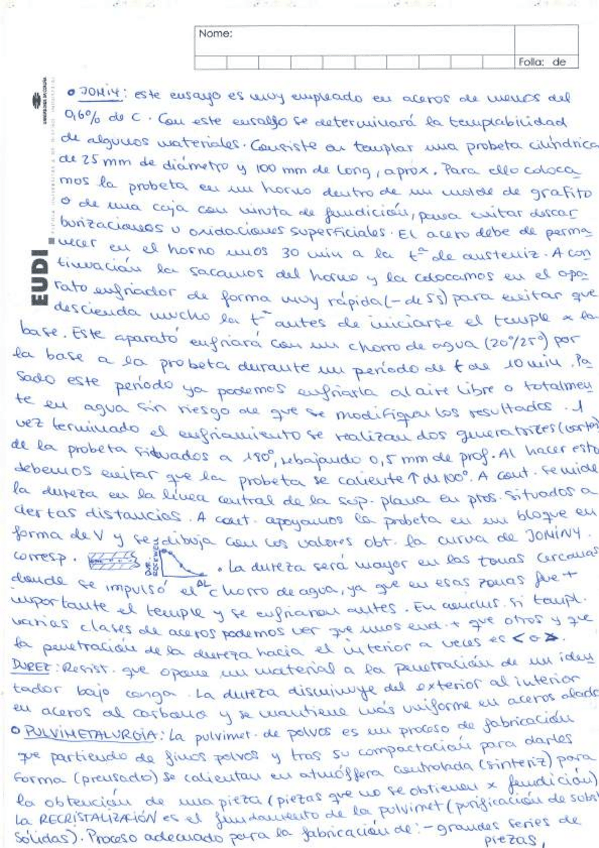 Nome:
Folla: de
EUDI
• JOMINY: este ensayo es muy empleado en aceros de menos del
0,6% de C. Con este ensayo se determinará la templabilidad
de algunos materiales. Consiste en templar una probeta cilíndrica
de 25 mm de diámetro y 100 mm de long, aprox. Para ello coloca_
mos la probeta en un horno dentro de un molde de grafito
o de una caja con viruta de fundición, para evitar descar_
burizaciones u oxidaciones superficiales. El acero debe de perma_
necer en el horno unos 30 min a la tª de austeniz. A con_
tinuación la sacamos del horno y la colocamos en el apa_
rato enfriador de forma muy rápida (- de 5s) para evitar que
descienda mucho la tª antes de iniciarse el temple x la
base. Este aparato enfriará con un chorro de agua (20º/25º) por
la base a la probeta durante un período de t de 10 min. Pa_
sado este período ya podemos enfriarla al aire libre o totalmen_
te en agua sin riesgo de que se modifiquen los resultados. 1
vez terminado el enfriamiento se realizan dos generatrizes
de la probeta situados a 180º, rebajando 0,5 mm de prof. Al hacer esto
debemos evitar que la probeta se caliente ↑ de 100º. A cont. se mide
la dureza en la línea central de la sup. plana en ptos. situados a
ciertas distancias. A cont. apoyamos la probeta en un bloque en
forma de V y se dibuja con los valores obt. la curva de JOMINY
corresp. . La dureza será mayor en las zonas cercanas
donde se impulsó el chorro de agua, ya que en esas zonas fue +
importante el temple y se enfriaron antes. En conclus. si templ.
varias clases de aceros podemos ver que unos end. + que otros y que
la penetración de la dureza hacia el interior a veces es < o >.
DUREZ: Resist. que opone un material a la penetración de un iden_
tador bajo carga. La dureza disminuye del exterior al interior
en aceros al carbono y se mantiene más uniforme en aceros alados
• PULVIMETALURGIA: La pulvimet. de polvos es un proceso de fabricación
que partiendo de finos polvos y tras su compactación para darles
forma (prensado) se calientan en atmósfera controlada (sinteriz) para
la obtención de una pieza (piezas que no se obtienen x fundición)
La RECRISTALIZACIÓN es el fundamento de la pulvimet (purificación de subst
sólidas). Proceso adecuado para la fabricación de: - grandes series de
piezas,